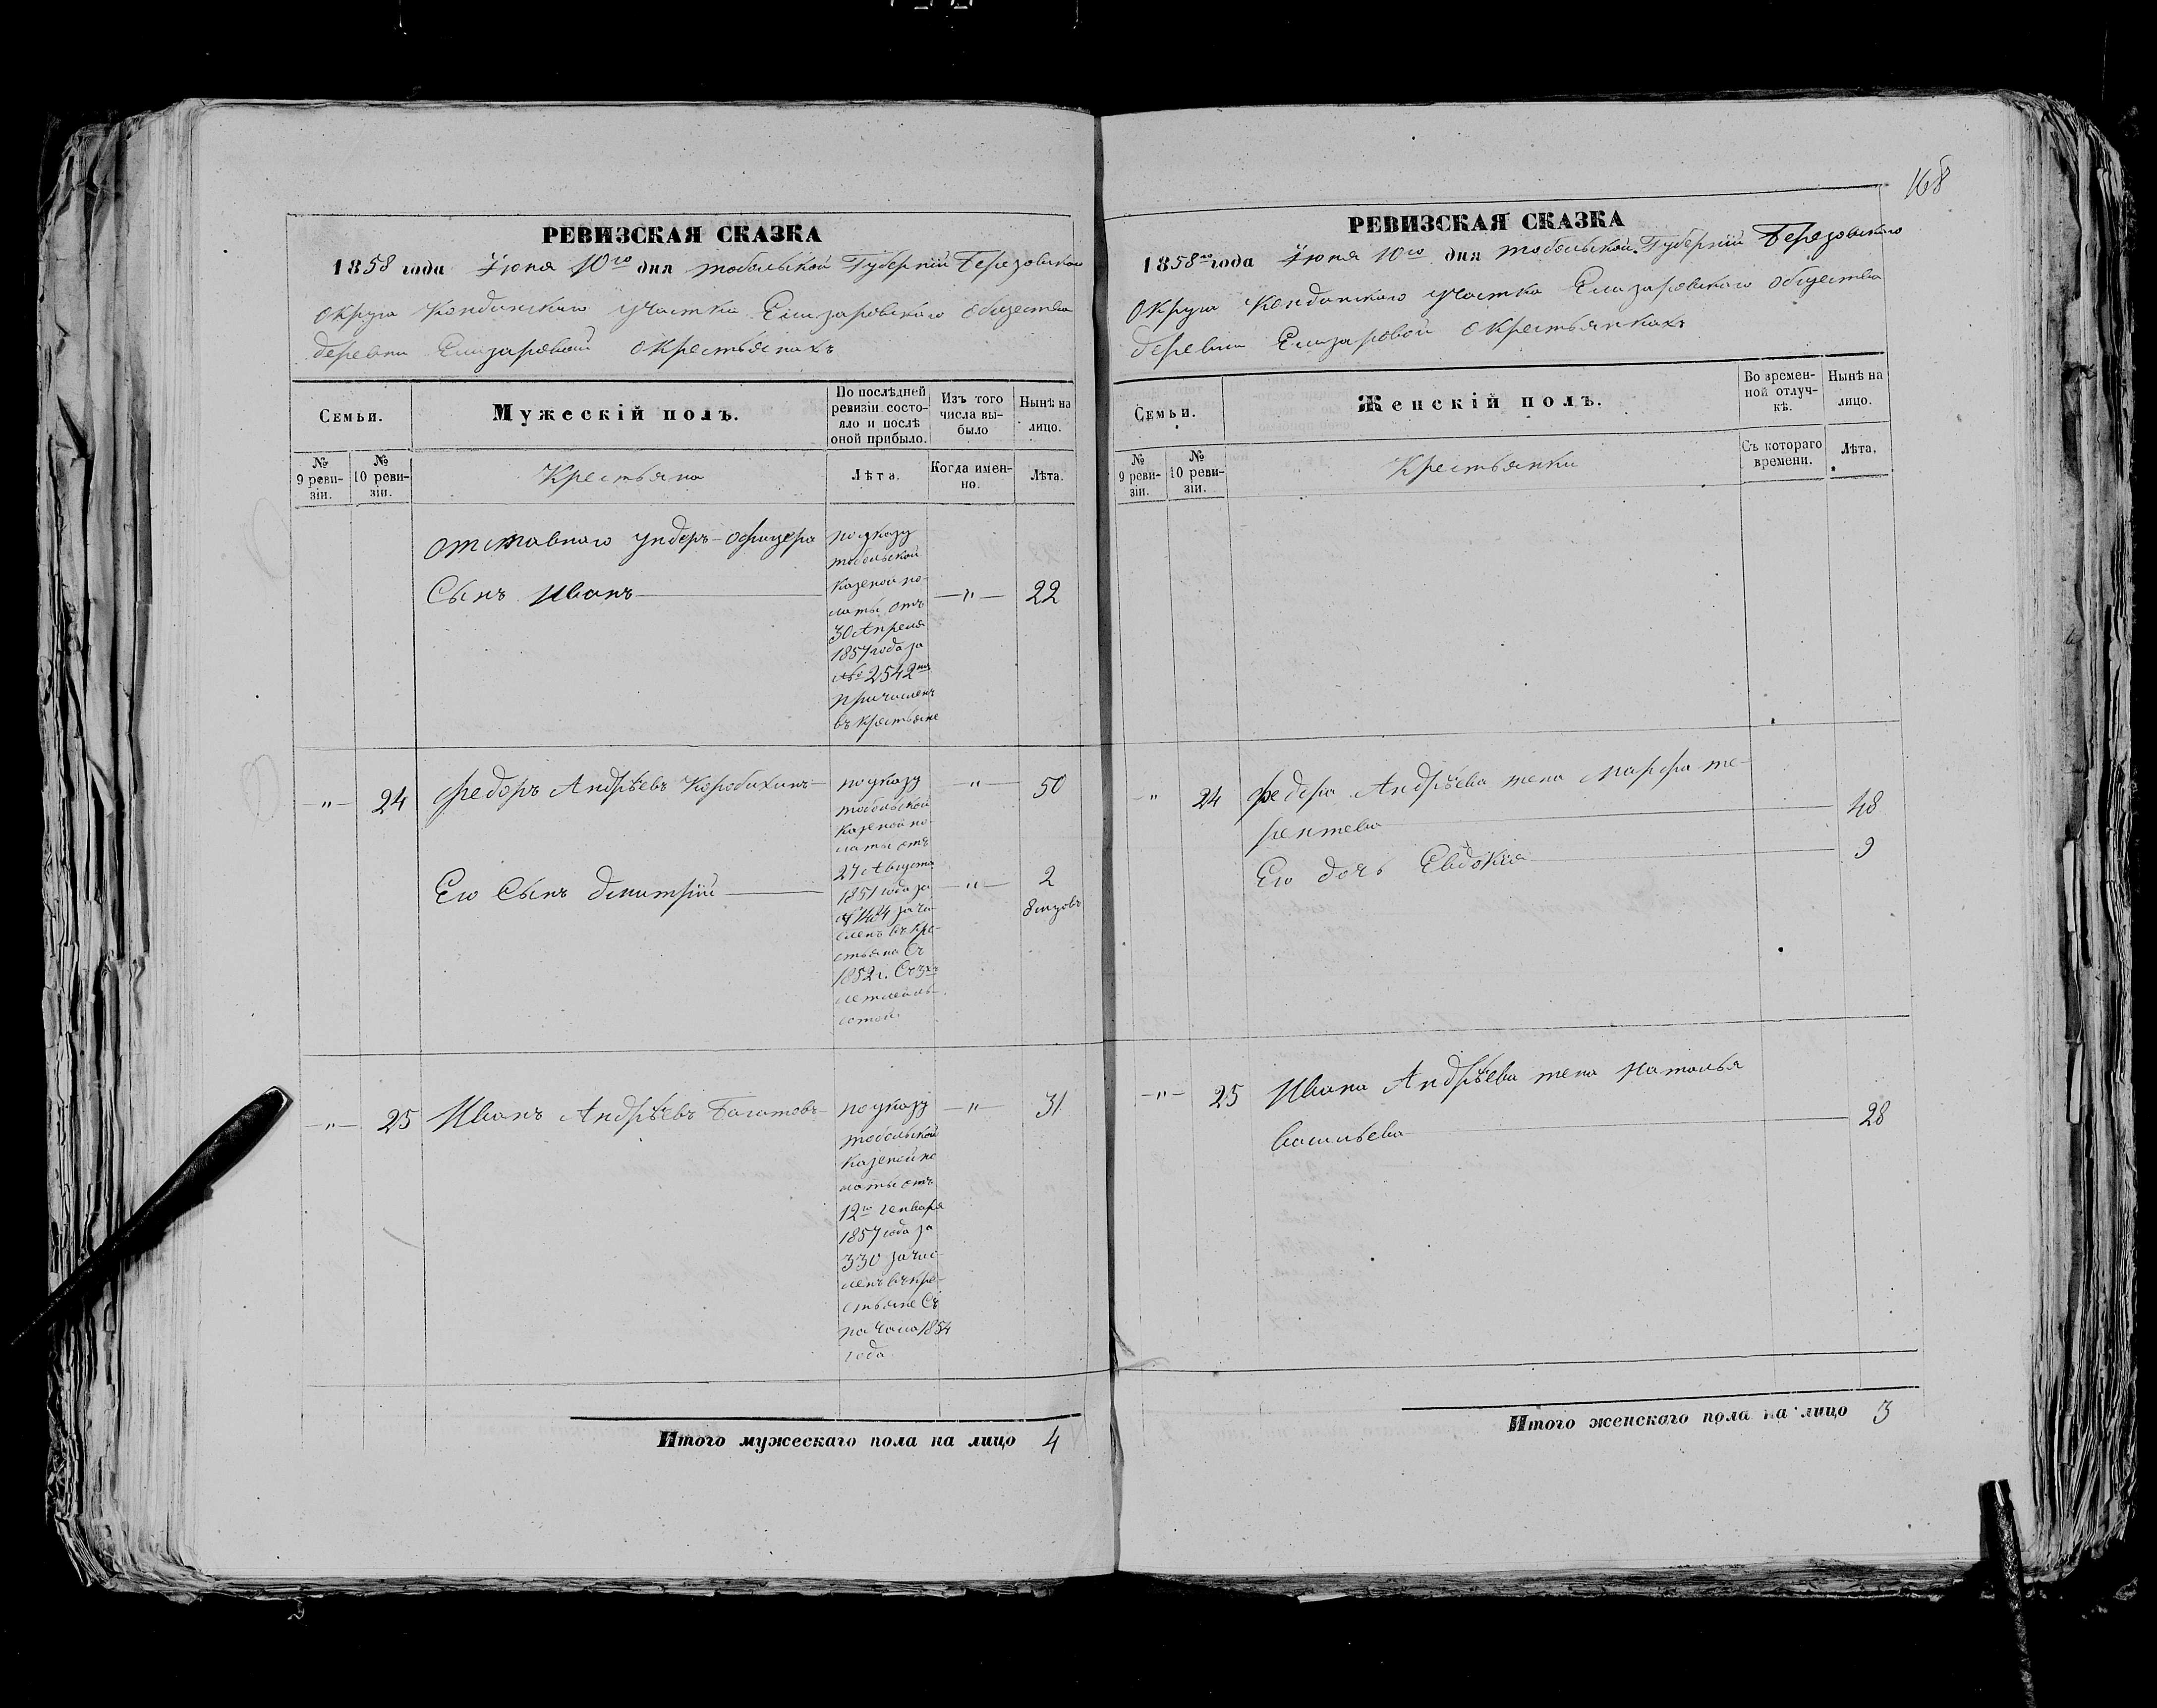 168
РЕВИЗСКАЯ СКАЗКА
1858 года Іюня 10го дня тобольской Губерніи Березовскаго
округа Кондинскаго участка Елизаровскаго общества
деревни Елизаровой окрестьянахъ
Семьи.
Мужескій полъ.
По послѣдней
ревизіи состо-
яло и послѣ
оной прибыло.
Изъ того
числа вы-
было
Нынѣ на
лицо.
№
9 реви-
зіи.
№
10 реви-
зіи.
Крестьяна
Лѣта.
Когда имен-
но.
Лѣта.
отставнаго ундеръ-офицера
Сынъ Иванъ
поуказу
тобольской
казеной по-
латы отъ
30 Апреля
1857 года за
№ 2542
причисленъ
въ крестьяне
—"—
22
—"—
24
Федоръ Андрѣевъ Коробихинъ
поуказу
тобольской
казеной по-
латы отъ
27 Августа
1851 года за
зачи-
сленъ въ кре-
стьяна Съ
1852 г. Съ 3хъ
летней ль-
готой
—"—
50
Его Сынъ Дмитрій
—"—
2
8 месяцовъ
—"—
25
Иванъ Андрѣевъ Багатовъ
поуказу
тобольской
казеной по
латы отъ
12го генваря
1857 года за
330 зачис-
ленъ въ кре-
стьяне Съ
начала 1854
года
—"—
31
Итого мужескаго пола на лицо 4
РЕВИЗСКАЯ СКАЗКА
1858го года Іюня 10го дня тобольской Губерніи Березовскаго
округа Кондинскаго участка Елизаровскаго общества
деревни Елизаровой окрестьянкахъ
Семьи.
Женскій полъ.
Во времен-
ной отлуч-
кѣ.
Нынѣ на
лицо.
№
9 реви-
зіи.
№
10 реви-
зіи.
Крестьянки
Съ котораго
времени.
Лѣта.
—"
24
Федора Андрѣева жена Марфа те-
рентева
48
Его дочь Евдокія
9
—"—
25
Ивана Андрѣева жена Наталья
Васильева
28
Итого женскаго пола на лицо 3